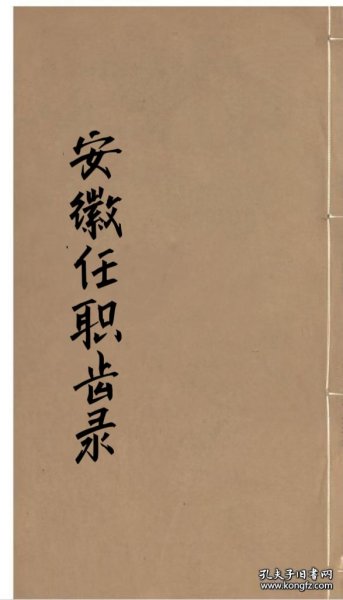 安徽任职齿录
孔夫子旧书网
www.kongfz.com